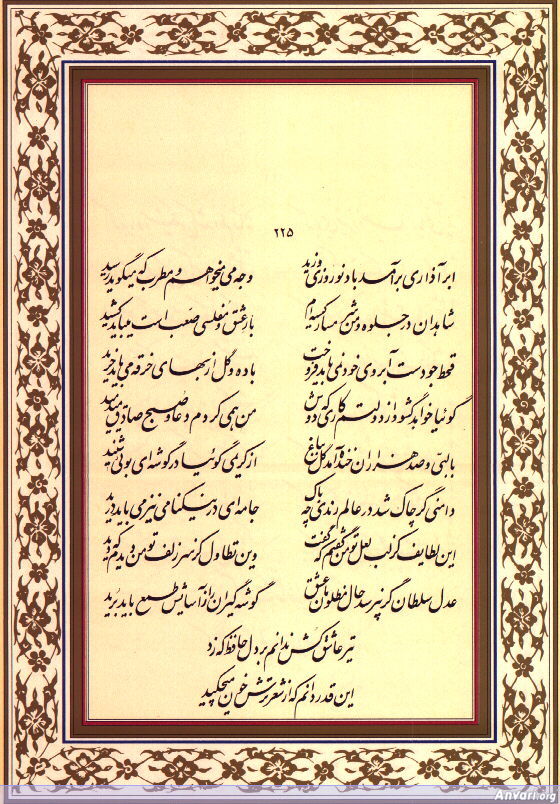 ۲۲۵
ابر آذاری برآمد باد نوروزی وزید وجه می میخواهم و مطرب که میگوید رسید
شاهدان در جلوه و من شرمسار کیسه‌ام بار عشق و مفلسی صعب است میباید کشید
قحط جودست آبروی خود نمی‌باید فروخت باده و گل از بهای خرقه می‌باید خرید
گوئیا خواهد گشود از دولتم کاری که دوش من همی کردم دعا و صبح صادق میدمید
بالبی و صد هزاران خنده آمد گل بباغ از کریمی گوئیا در گوشه‌ای بوئی شنید
دامنی گر چاک شد در عالم رندی چه باک جامه‌ای در نیکنامی نیز می‌باید درید
این لطایف کز لب لعل تو من گفتم که گفت وین تطاول کز سر زلف تو من دیدم که دید
عدل سلطان گر نپرسد حال مظلومان عشق گوشه گیران را ز آسایش طمع باید برید
تیر عاشق کش ندانم بر دل حافظ که زد
این قدر دانم که از شعر ترش خون میچکید
AnVari.org